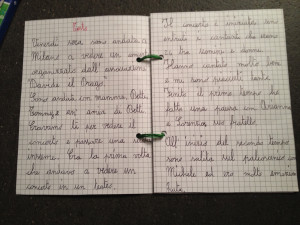 Testo
Venerdì sera sono andata a
Milano a vedere un
organizzato dall'associazione
Davide il Drago.
Sono andata con mamma, Betti,
Tommaso e amici di Betti.
Eravamo lì per vedere il
concerto e passare una
insieme. Era la prima volta
che andavo a vedere un
concerto in un teatro.
Il concerto è iniziato, sono
entrati i cantanti che erano
tra uomini e donne.
Hanno cantato molto bene
e mi sono piaciuti tanto.
Finito il primo tempo c'è
stata una pausa
e Lorenzo, suo fratello.
All'inizio del secondo tempo
sono salita sul palcoscenico con
Michele ed ero molto emozio
nata.